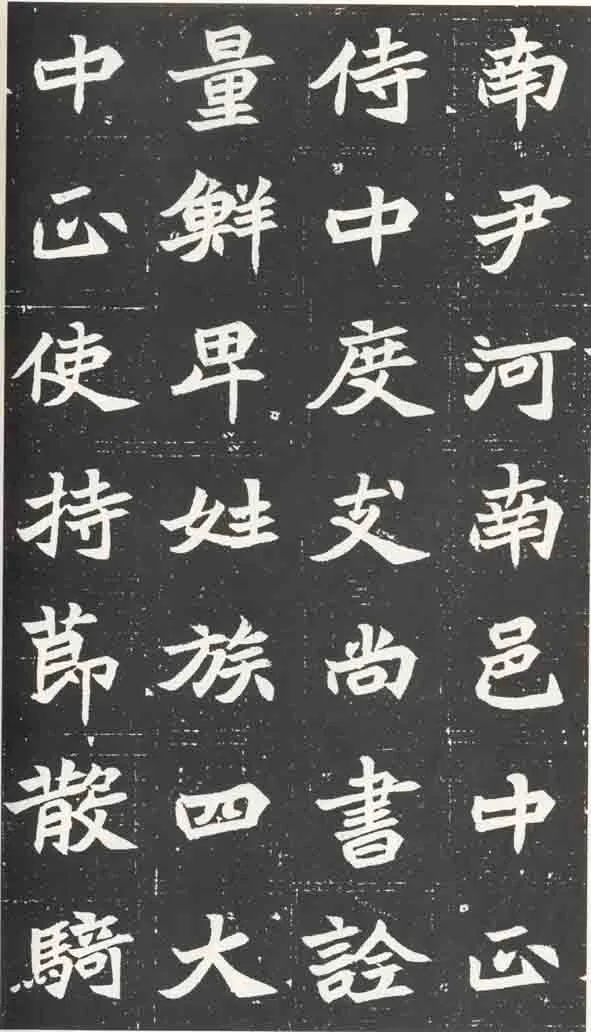 南尹河南邑中正
侍中度支尚書詮
量鮮卑姓族四大
中正使持節散騎